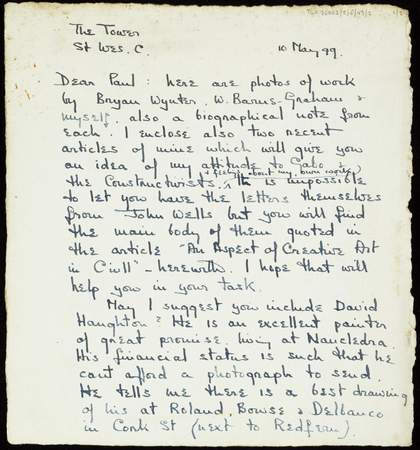 The Tower
St Wes. C. 10 May 99.
Dear Paul: here are photos of work
by Bryan Wynter, W. Barns-Graham &
myself. also a biographical note from
each. I enclose also two recent
articles of mine which will give you
an idea of my attitude to Gabo &
the Constructivists. (& feelings about my own work) It is impossible
to let you have the letters themselves
from John Wells but you will find
the main body of them quoted in
the article "An Aspect of Creative Art
in C'wll" - herewith. I hope that will
help you in your task.
May I suggest you include David
Haughton? He is an excellent painter
of great promise living at Nancledra.
His financial status is such that he
cant afford a photograph to send.
He tells me there is a best drawing
of his at Roland, Bowse & Delbanco
in Cork St (next to Redfern).